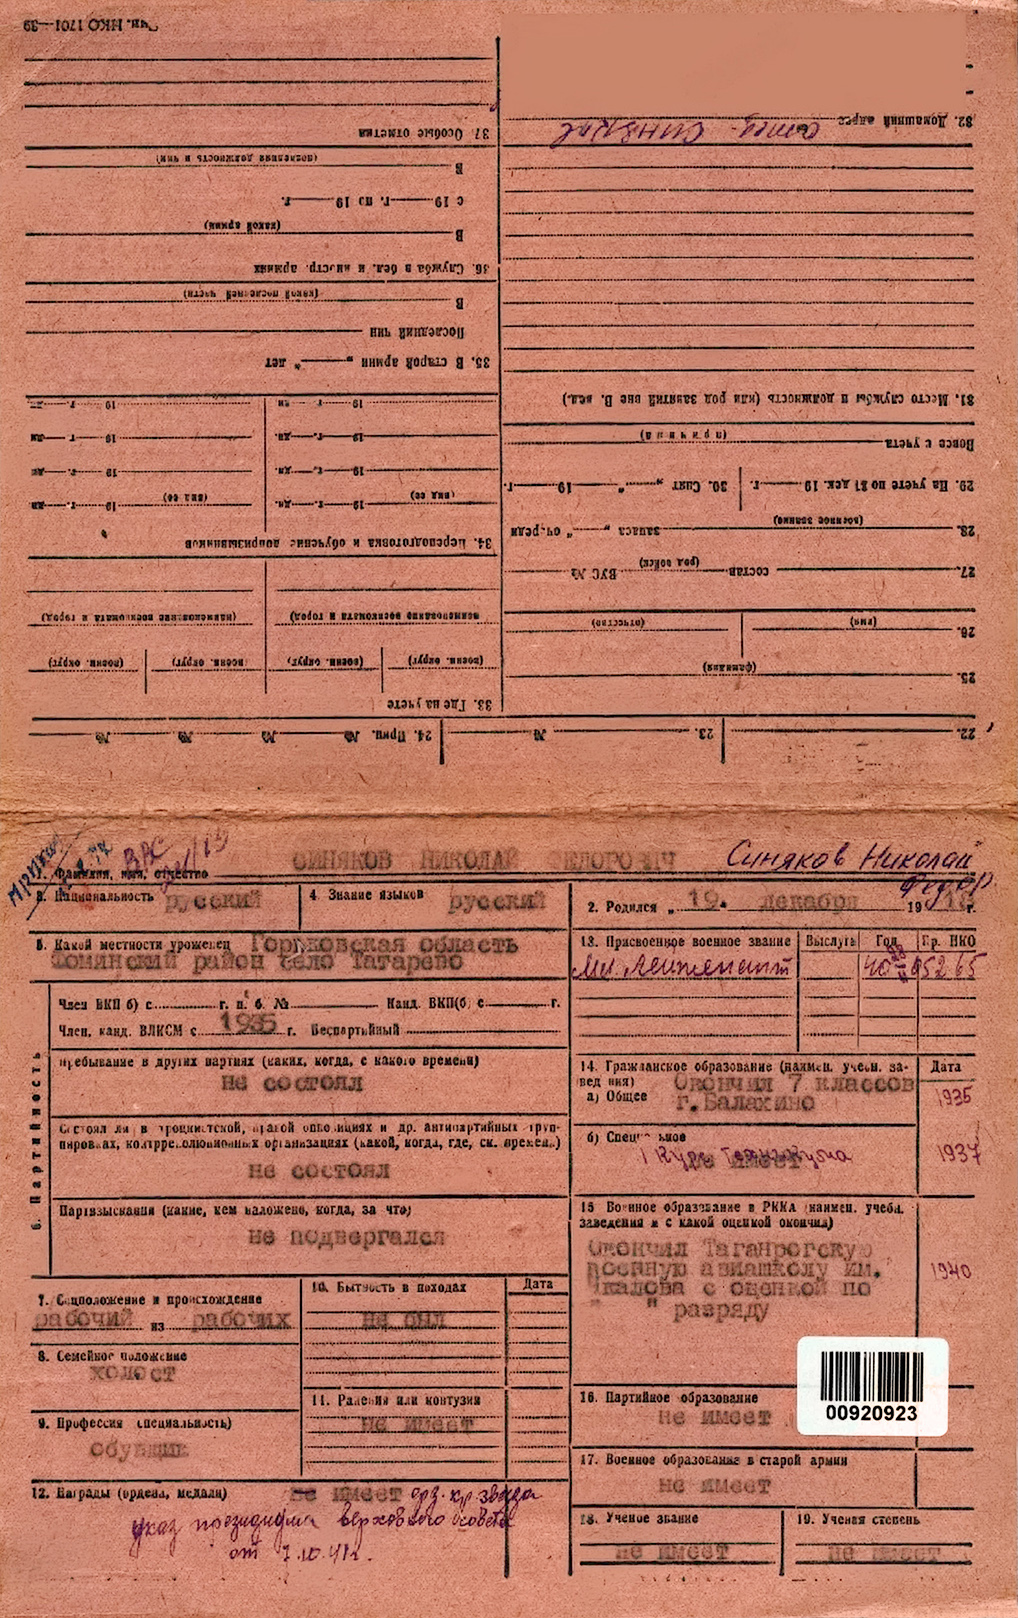 Тип. НКО 1701—39
37. Особые отметки
32. Домашний адрес отец - Синяков
В
(последняя должность и чин)
с 19 г. по 19 г.
В
(какой армии)
36. Служба в бел. и иностр. армиях
В
(какой последней части)
Последний чин
35. В старой армии „ “ лет
31. Место службы и должность (или род занятий вне В. вед.)
Вовсе с учета
(причина)
29. На учете по 31 дек. 19 г. 30. Снят „ “ 19 г.
28. запаса „ “ очереди
(военное звание)
27. состав ВУС №
(род войск)
34. Переподготовка и обучение допризывников
19 г. дн. 19 г. дн.
19 г. дн. 19 г. дн.
19 г. дн. 19 г. дн.
19 г. дн. 19 г. дн.
(вид ее) (вид ее)
26.
(имя) (отчество)
25.
(фамилия)
33. Где на учете
(воен. округ) (воен. округ) (воен. округ) (воен. округ)
(наименование военкомата и город) (наименование военкомата и город)
22. 23. № 24. Приц. № № № №
1. Фамилия, имя, отчество СИНЯКОВ НИКОЛАЙ ФЕДОРОВИЧ Синяков Николай
Федор.
3. Национальность русский 4. Знание языков русский
2. Родился „19. декабря 1918 г.
5. Какой местности уроженец Горьковская область
район село Татарево
13. Присвоенное военное звание Выслуга Год Пр. НКО
Мл. Лейтенант 40 05265
6. Партийность
Член ВКП(б) с г. п. б. № Канд. ВКП(б) с г.
Член, канд. ВЛКСМ с 1935 г. Беспартийный
Пребывание в других партиях (каких, когда, с какого времени)
не состоял
Состоял ли в троцкистской, правой оппозициях и др. антипартийных груп-
пировках, контрреволюционных организациях (какой, когда, где, ск. времени)
не состоял
Партвзыскания (какие, кем наложено, когда, за что)
не подвергался
14. Гражданское образование (наимен. учебн. за- Дата
ведения)
а) Общее Окончил 7 классов
г. Балахино 1935
б) Специальное
не имеет
1 Курс Техникума 1937
15 Военное образование в РККА (наимен. учебн.
заведения и с какой оценкой окончил)
Окончил Таганрогскую
военную авиашколу им.
Чкалова с оценкой по
" " разряду
1940
7. Соцположение и происхождение
рабочий из рабочих
8. Семейное положение
холост
9. Профессия (специальность)
обувщик
10. Бытность в походах Дата
не был
11. Ранения или контузии
не имеет
12. Награды (ордена, медали) не имеет орд. кр. звезда
указ президиума верховного совета
от 7.10.41г.
16. Партийное образование
не имеет
00920923
17. Военное образование в старой армии
не имеет
18. Ученое звание 19. Ученая степень
не имеет не имеет